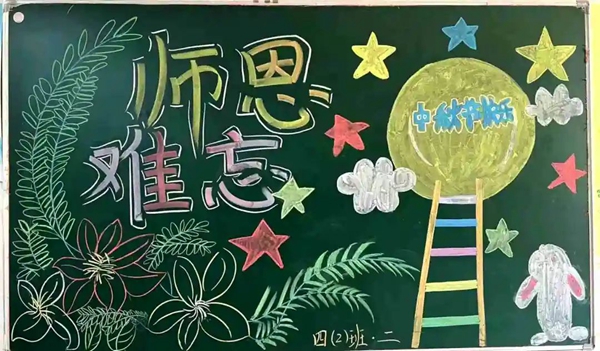 师恩
难忘
中秋节快乐
四(2)班·二